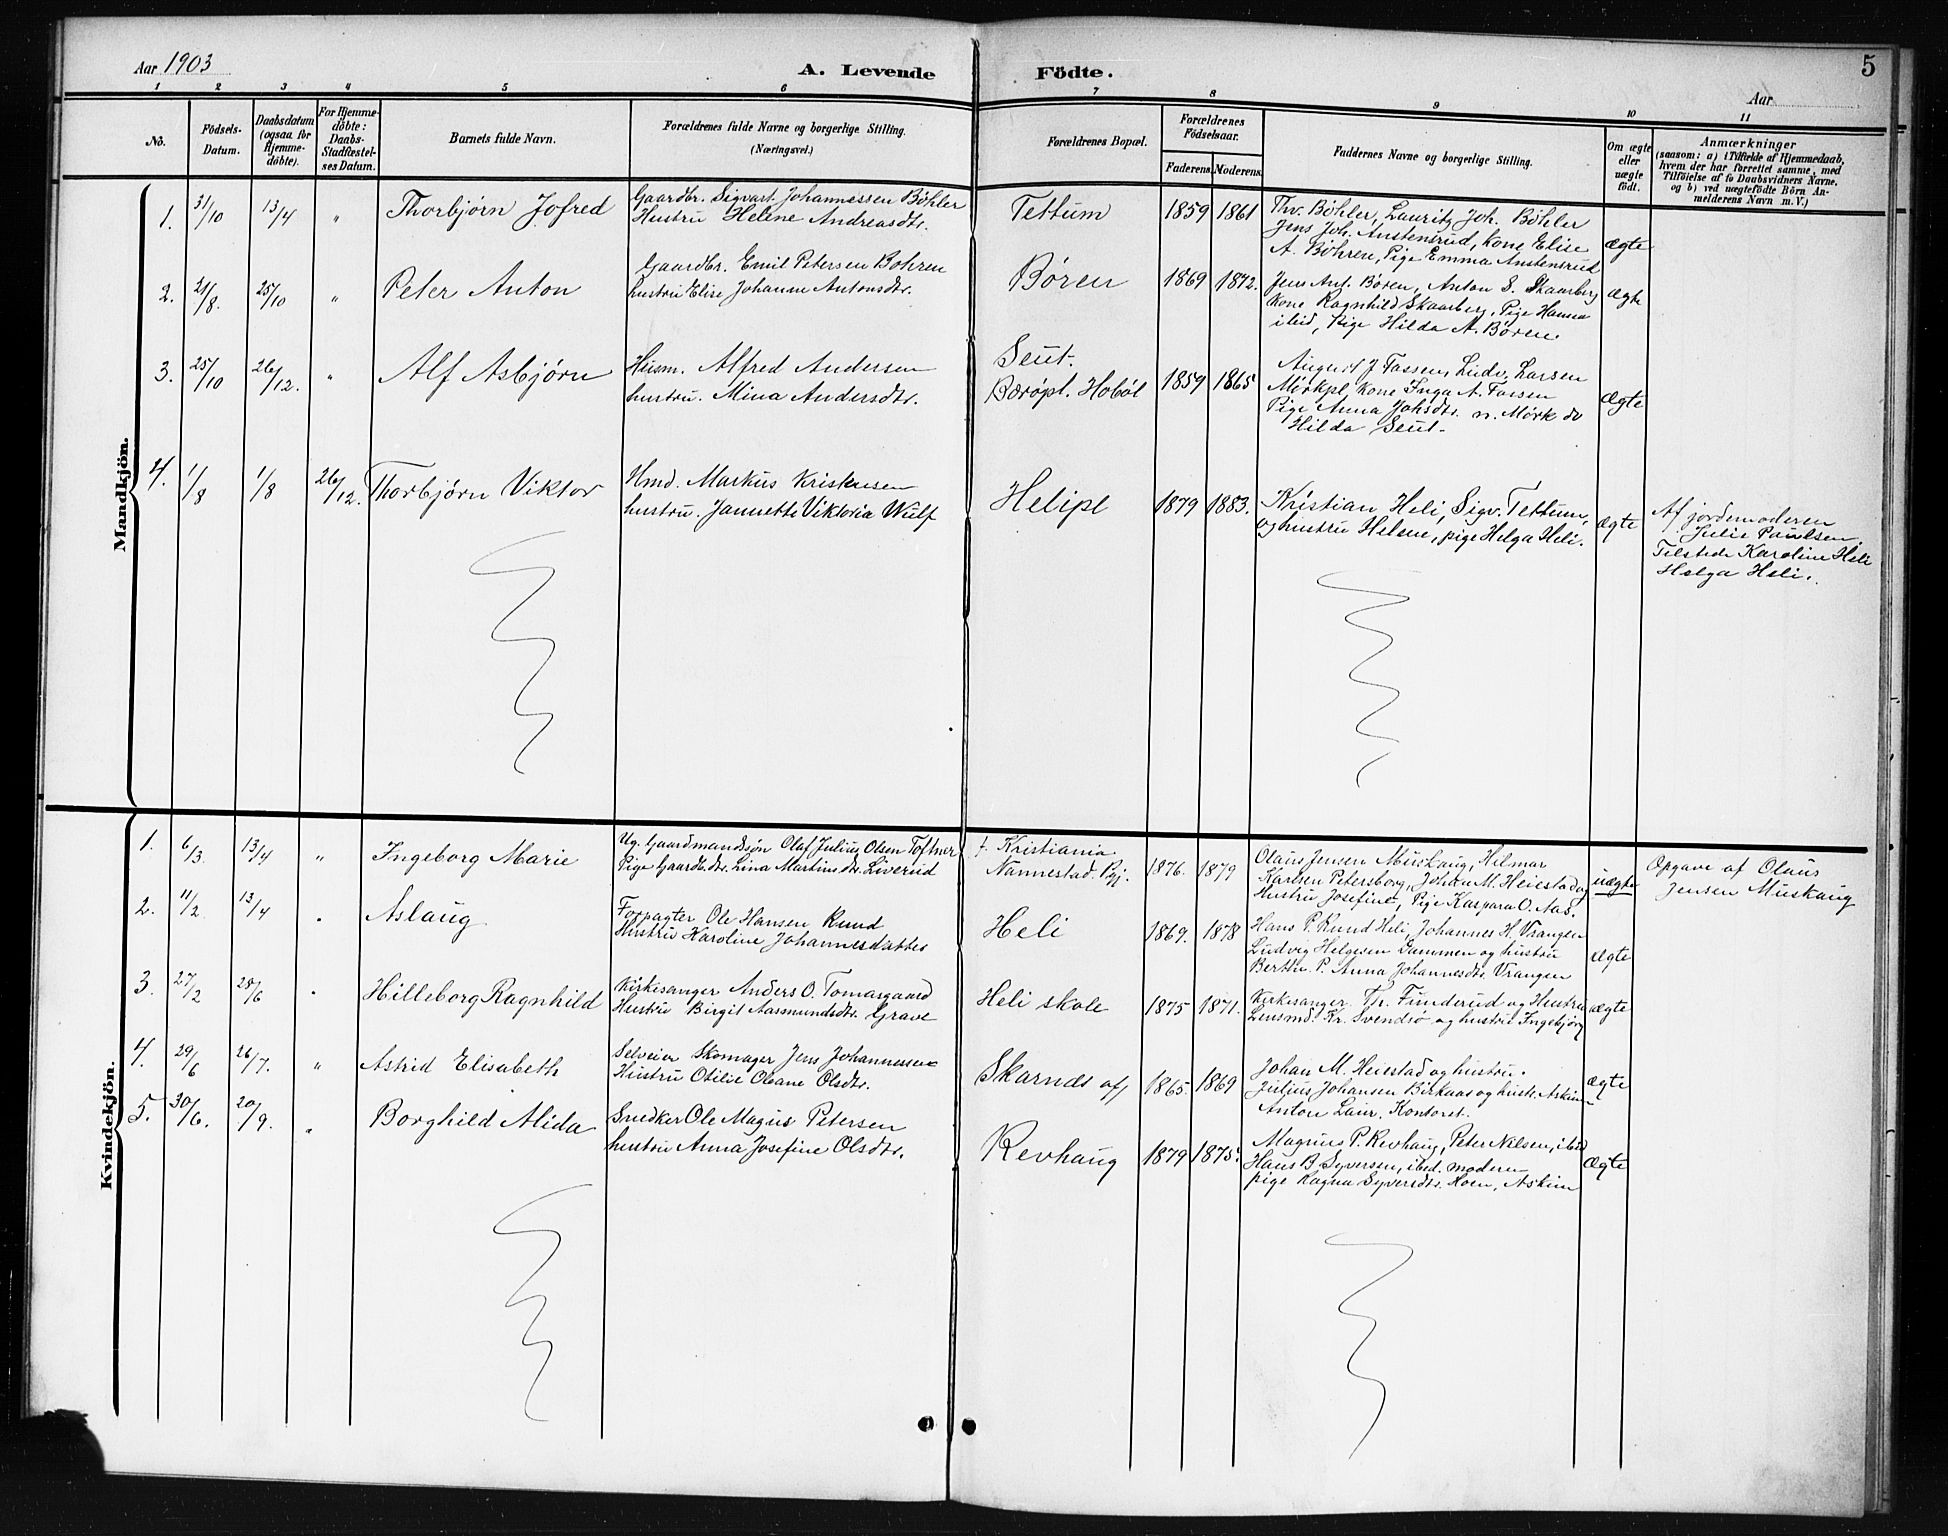 Aar 1903
A. Levende
Födte.
5
Aar
1 2 3 4 5 6 7 8 9 10 11
No.
Födsels-
Datum.
Daabsdatum
(ogsaa for
Hjemme-
döbte).
For Hjemme-
döbte:
Daabs-
Stadfæstel-
ses Datum.
Barnets fulde Navn.
Forældrenes fulde Navne og borgerlige Stilling.
(Næringsvei.)
Forældrenes Bopæl.
Forældrenes
Födselsaar.
Faderens. Moderens.
Faddernes Navne og borgerlige Stilling.
Om ægte
eller
uægte
födt.
Anmærkninger
(saasom: a) i Tilfælde af Hjemmedaab,
hvem der har forrettet samme, med
Tilföielse af to Daabsvidners Navne,
og b) ved uægtefödte Börn An-
melderens Navn m. V.)
Mandkjön.
1. 31/10 13/4 " Thorbjørn Jofred
Gaardbr. Sigvart Johannessen Bøhler
Hustru Helene Andreasdtr.
Tettum 1859 1861
Thv. Bøhler, Lauritz Joh. Bøhler
Jens Joh. Austensrud, Kone Elise
A. Bøhren, Pige Emma Austensrud
ægte
2. 21/8. 25/10 " Peter Anton
Gaardbr. Emil Petersen Bohren
hustru Elise Johanne Antonsdtr.
Børen 1869 1872.
Jens Ant. Børen, Anton S. Skaarberg
Kone Ragnhild Skaarberg, Pige Hanna
ibid, pige Hilda A. Børen.
ægte
3. 25/10 26/12. " Alf Asbjørn
Husm. Alfred Andersen
hustru. Mina Andersdtr.
Seut.
Bærøpl. Hobøl 1859 1865
August J. Fossen, Ludv. Larsen
Mørkpl. Kone Inga A. Fossen
Pige Anna Johsdtr. n. Mørk do
Hilda Seut.
ægte
4. 1/8 1/8 26/12. Thorbjørn Viktor
Hmd. Markus Kristensen
hustru. Jannette Viktoria Wulf
Helipl 1879 1883.
Kristian Heli, Sigv. Tettum,
og hustru Helene, pige Helga Heli.
ægte
Af jordemoderen
Julie Paulsen
Tilstede Karoline Heli
Helga Heli.
Kvindekjön.
1. 6/3. 13/4 " Ingeborg Marie
Ug. Gaardmandsøn Olaf Julius Olsen Toftner
Pige Gaardb.dtr. Lina Martinsdtr. Liverud
f. Kristiania
Nannestad. Pgj. 1876. 1879
Olaus Jensen Muskaug, Hilmar
Karlsen Petersborg, Johan M. Heiestad og
Hustru Josefine, Pige Kaspara O. Aas.
uægte
Opgave af Olaus
Jensen Muskaug
2. 11/2. 13/4 " Aslaug
Forpagter Ole Hansen Rund
Hustru Karoline Johannesdatter
Heli 1869. 1878
Hans P. Rund Heli, Johannes H. Vrangen
Ludvig Helgesen Dammen og hustru
Berthe P. Anna Johannesdtr. Vrangen
ægte
3. 27/2 28/6 " Hilleborg Ragnhild
Kirkesanger Anders O. Tomasgaard
Hustru Birgit Aasmundsdtr. Grave
Heli skole 1875 1871.
Kirkesanger Th. Funderud og Hustru
Lensmd. Kr. Svendsø og hustru Ingebjørg
ægte
4. 29/6 26/7. " Astrid Elisabeth
Selveier Skomager Jens Johannessen
Hustru Otilie Oleane Olsdtr.
Skarnds af 1865. 1869
Johan M. Heiestad og hustru.
Julius Johansen Birkaas og hustr. Askim
Anton Laur. Kontoret.
ægte
5. 30/6. 20/9. " Borghild Alida
Snedker Ole Magus Petersen
hustru Anna Josefine Olsdtr.
Revhaug 1879 1875.
Magnus P. Revhaug, Peter Nilsen, ibid
Hans B. Syversen, ibid. modern
pige Ragna Syversdtr. Roen, Askim
ægte